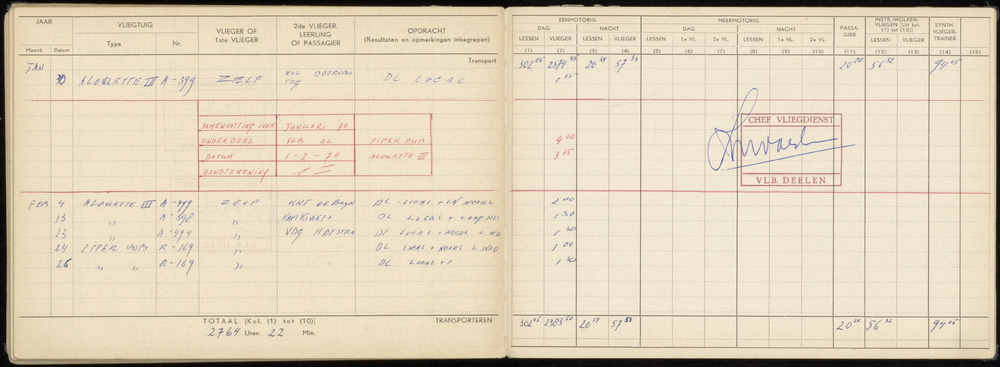 JAAR
VLIEGTUIG
VLIEGER OF
1ste VLIEGER
2de VLIEGER,
LEERLING
OF PASSAGIER
OPDRACHT
(Resultaten en opmerkingen inbegrepen)
Maand Datum Type Nr.
Transport
JAN
30 ALOUETTE III A-399 ZELF DL LOCAL
SAMENVATTING VOOR JANUARI '70
ONDERDEEL VLB DL PIPER CUB
DATUM 1-2-70 ALOUETTE III
HANDTEKENING
FEB 4 ALOUETTE III A-499 ZELF KNT DE BRUYN DL - LOCAL + LN NOODL
13 " A-398 " DL LOCAL + LAAG
23 " A-499 " VDG HOFSTRA DL LOCAL + NOODL
24 PIPER CUB R-169 " DL LOCAL + NOODL
26 " " R-169 " DL LOCAL
TOTAAL [Kol. (1) tot (10)]
2764 Uren 22 Min.
TRANSPORTEREN
EENMOTORIG
MEERMOTORIG
PASSA-
GIER
INSTR./WOLKEN-
VLIEGEN [Uit kol.
(1) tot (10)]
SYNTH.
VLIEGER-
TRAINER
DAG NACHT DAG NACHT
LESSEN VLIEGER LESSEN VLIEGER LESSEN 1e VL. 2e VL. LESSEN 1e VL. 2e VL. LESSEN VLIEGER
(1) (2) (3) (4) (5) (6) (7) (8) (9) (10) (11) (12) (13) (14) (15)
302 05 2374 45 20 59 57 53 20 20 56 32 94 05
1 55
4 00
3 55
CHEF VLIEGDIENST
VLB. DEELEN
2 00
1 30
1 30
1 00
1 30
302 05 2383 20 20 59 57 53 20 20 56 32 94 05